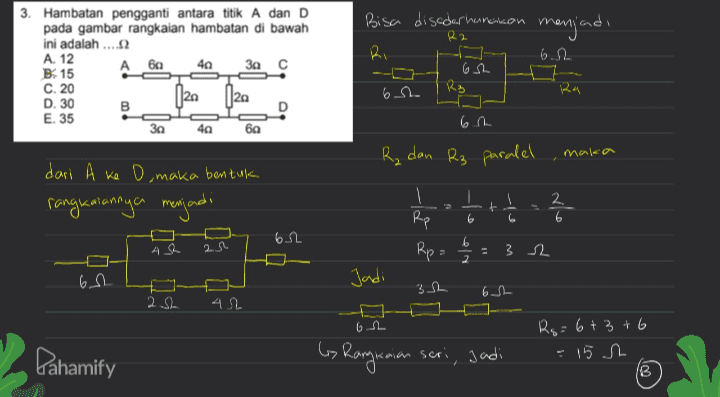 3. Hambatan pengganti antara titik A dan D
pada gambar rangkaian hambatan di bawah
ini adalah ....Ω
A. 12
B. 15
C. 20
D. 30
E. 35
A 6Ω 4Ω 3Ω C
2Ω 2Ω
B D
3Ω 4Ω 6Ω
dari A ke D, maka bentuk
rangkaiannya menjadi
4Ω 2Ω 6Ω
6Ω
2Ω 4Ω
Bisa disederhanakan menjadi
R2
R1 6Ω
6Ω
6Ω R3 R4
6Ω
R2 dan R3 paralel, maka
1/Rp = 1/6 + 1/6 = 2/6
Rp = 6/2 = 3 Ω
Jadi
3Ω 6Ω
6Ω
↳ Rangkaian seri, Jadi
Rs = 6 + 3 + 6
= 15 Ω
B
Pahamify